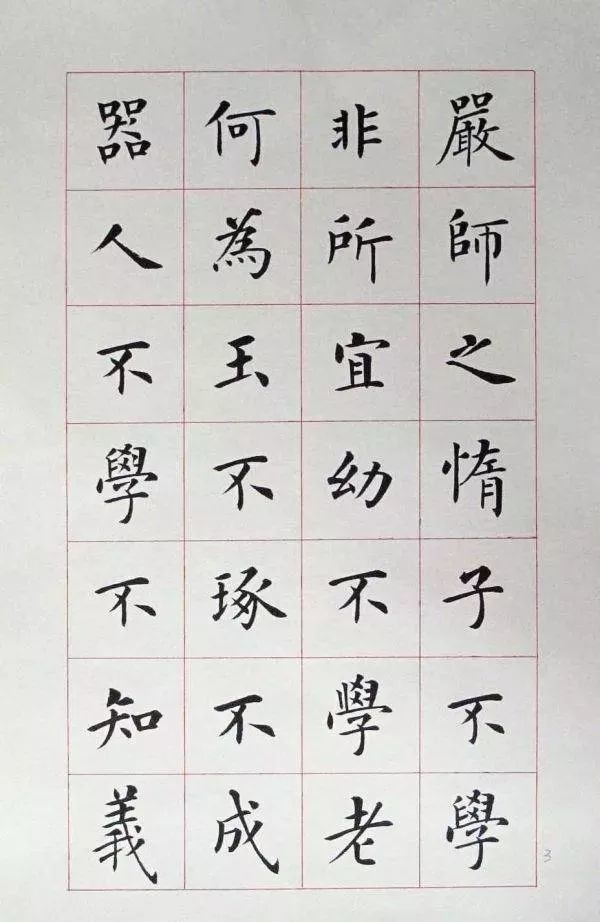 嚴師之惰子不學
非所宜幼不學老
何為玉不琢不成
器人不學不知義
3